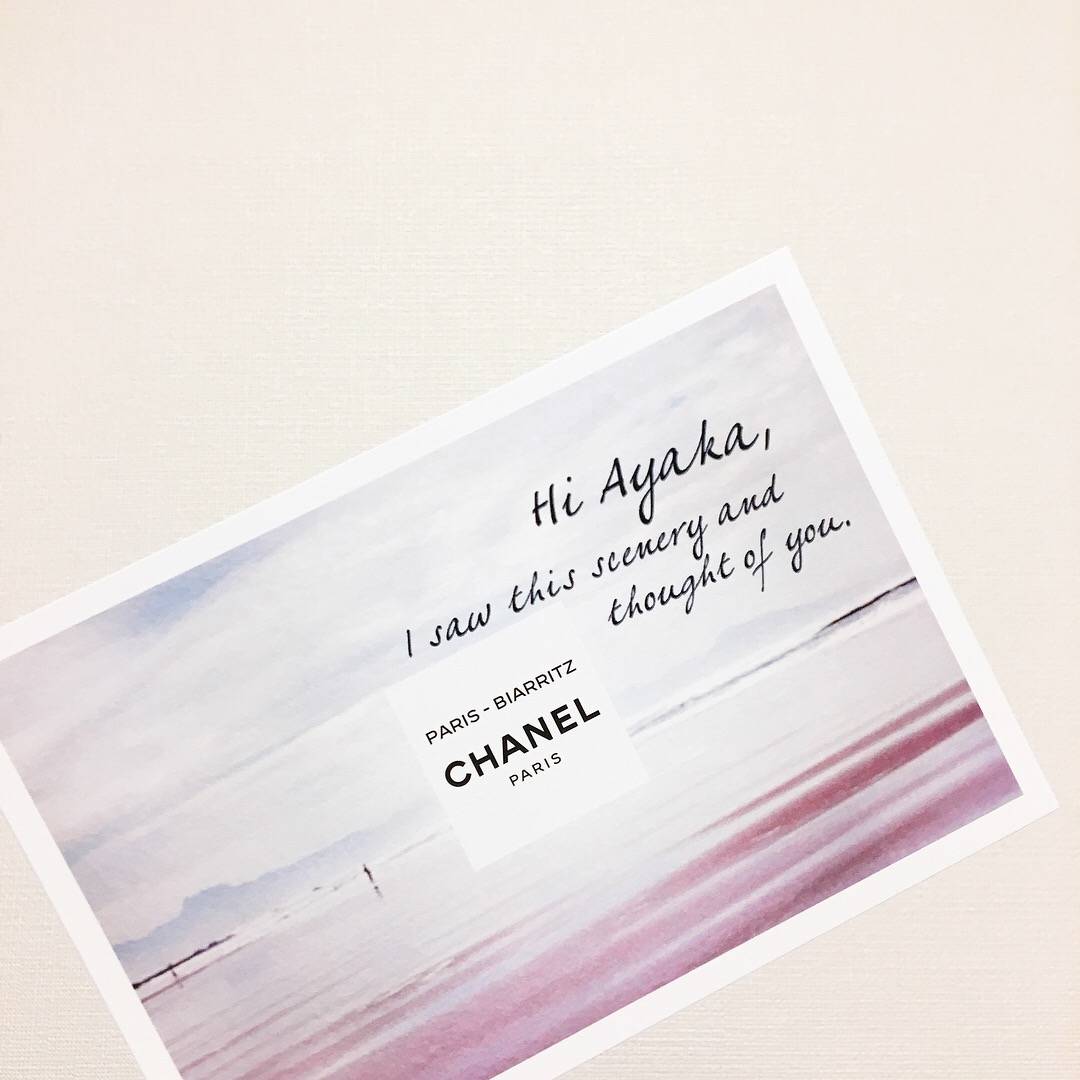 Hi Ayaka,
I saw this scenery and
thought of you.
PARIS - BIARRITZ
CHANEL
PARIS